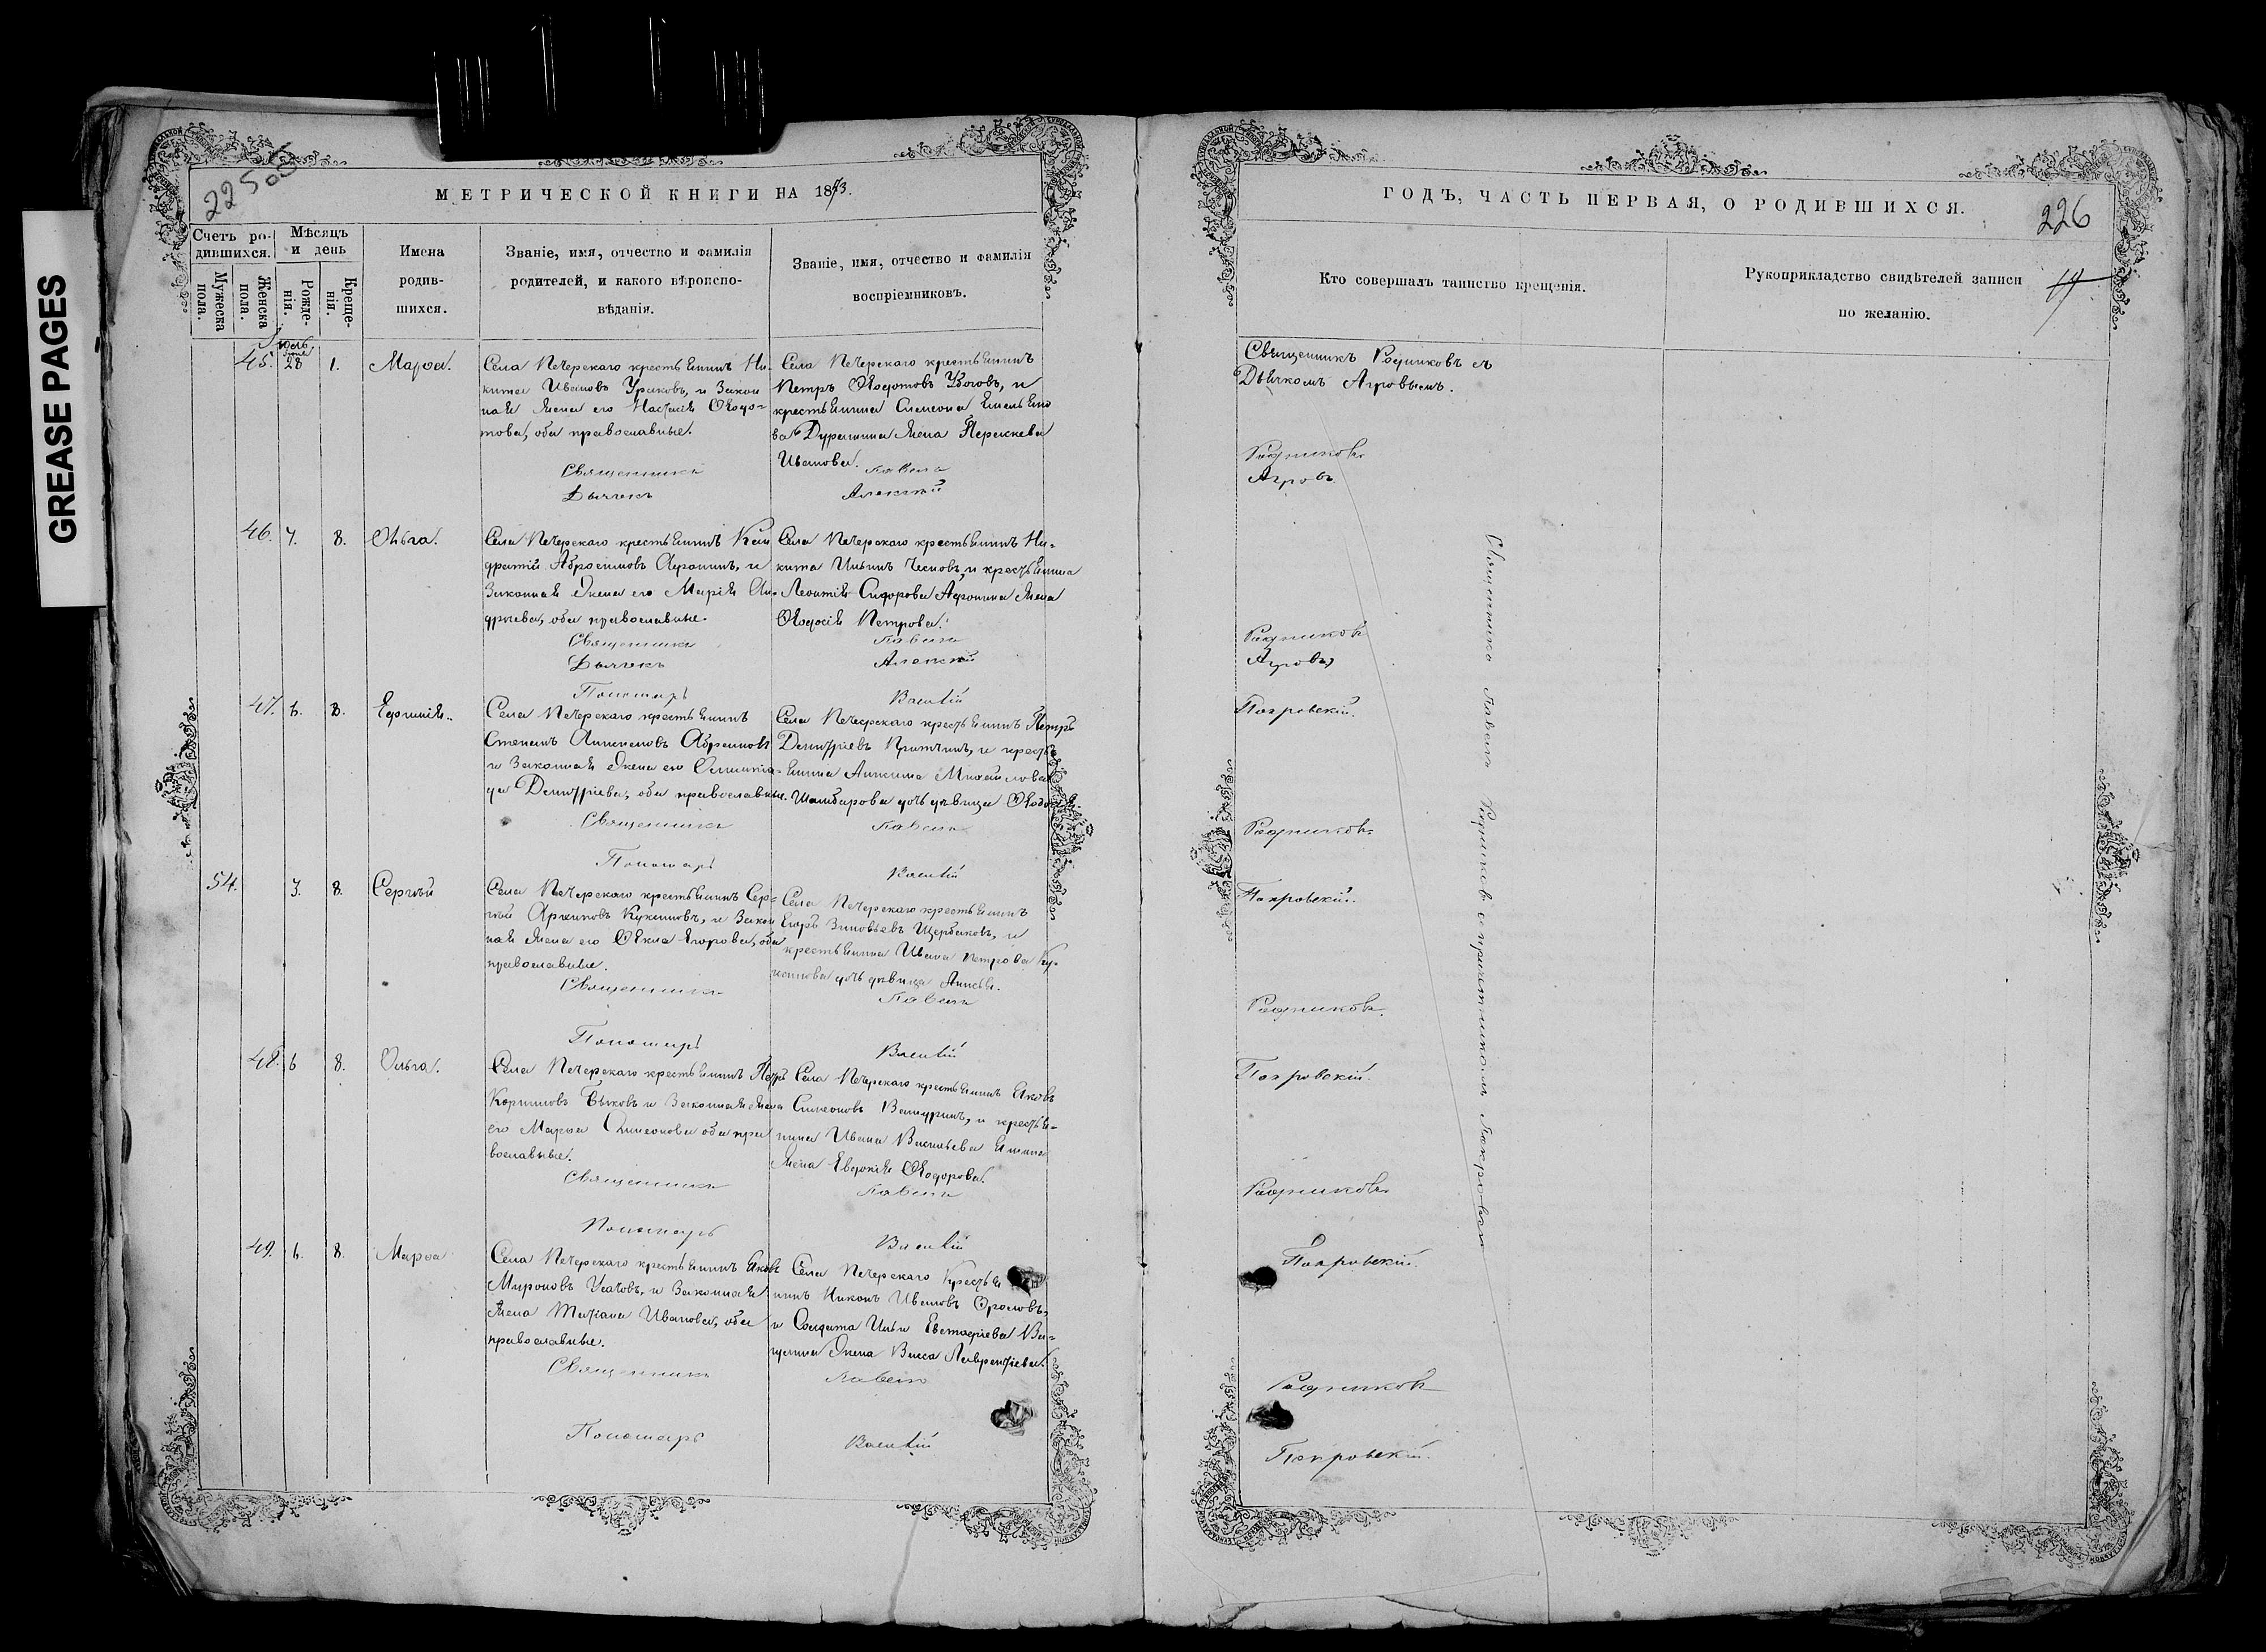 GREASE PAGES
225 об
МЕТРИЧЕСКОЙ КНИГИ НА 1873.
Счетъ ро-
дившихся.
Мѣсяцъ
и день
Мужеска
пола.
Женска
пола.
Рожде-
нія.
Креще-
нія.
Имена
родив-
шихся.
Званіе, имя, отчество и фамилія
родителей, и какого вѣроиспо-
вѣданія.
Званіе, имя, отчество и фамилія
воспріемниковъ.
Іюль
45. 28 1. Марѳа.
Села Печерскаго крестьянинъ Ни-
кита Ивановъ Ураковъ, и Закон
ная жена его Настасія Ѳедо-
това, оба православные.
Священникъ
Дьячекъ
Села Печерскаго крестьянинъ
Петръ Ѳедотовъ и
крестьянина Симеона Емельяно
ва жена Параскева
Иванова.
Павелъ
Алексій
46. 7. 8. Ольга.
Села Печерскаго крестьянинъ Кон
дратій Абросимовъ Афонинъ, и
Законная жена его Марія Ан-
дреева, оба православные.
Священникъ
Дьячекъ
Села Печерскаго крестьянинъ Ни-
кита Ильинъ и крестьянина
Леонтія Сидорова Афонина жена
Ѳедосія Петрова.
Павелъ
Алексій
Пономарь
Василій
47. 6. 8. Ефимія.
Села Печерскаго крестьянинъ
Степанъ Абрамовъ
и Законная жена его
да Димитріева, оба православные.
Священникъ
Села Печерскаго крестьянинъ Петръ
Димитріевъ и кресть-
янина Михайлова
дочь дѣвица
Павелъ
Пономарь
Василій
54. 7. 8. Сергѣй
Села Печерскаго крестьянинъ Сер-
гѣй Архиповъ и Закон
ная жена его Ѳекла Егорова, оба
православные.
Священникъ
Села Печерскаго крестьянинъ
Егоръ Зиновьевъ Щербаковъ, и
крестьянина Ивана Петрова
дочь дѣвица
Павелъ
Пономарь
Василій
48. 6 8. Ольга.
Села Печерскаго крестьянинъ Петръ
Корниловъ Быковъ и Законная жена
его Марѳа Симеонова оба пра
вославные.
Священникъ
Села Печерскаго крестьянинъ Яковъ
Симеоновъ и крестья-
нина Ивана Васильева
жена Евдокія Ѳедорова.
Павелъ
Пономарь
Василій
49. 6. 8. Марѳа
Села Печерскаго крестьянинъ Яковъ
Мироновъ Усачовъ, и Законная
жена Татіана Иванова, оба
православные.
Священникъ
Села Печерскаго Крестья
нинъ Никонъ Ивановъ Фроловъ,
и Солдата Ильи Евстафіева
жена Васса Лаврентіева.
Павелъ
Пономарь
Василій
ГОДЪ, ЧАСТЬ ПЕРВАЯ, О РОДИВШИХСЯ.
226
Кто совершалъ таинство крещенія.
Рукоприкладство свидѣтелей записи
по желанію.
Священникъ Родниковъ съ
Дьячкомъ Агровымъ.
Родниковъ
Агровъ
Родниковъ
Агровъ
Покровскій.
Родниковъ
Покровскій.
Родниковъ.
Покровскій.
Родниковъ
Покровскій.
Родниковъ
Покровскій.
Священникъ Павелъ Родниковъ с причетникомъ Покровскимъ